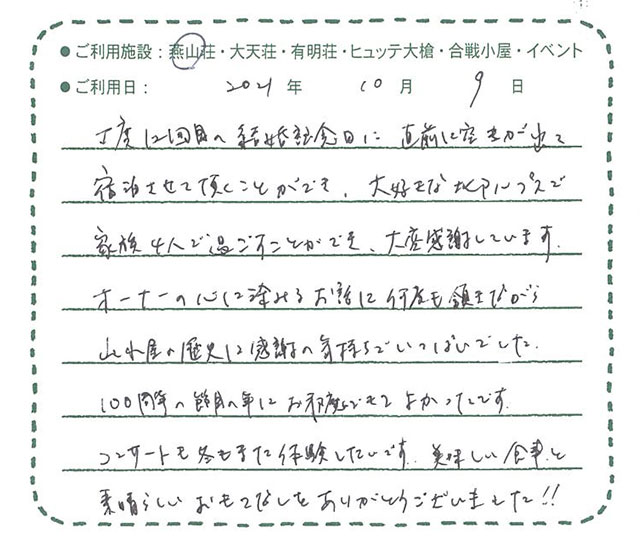 ●ご利用施設：燕山荘・大天荘・有明荘・ヒュッテ大槍・合戦小屋・イベント
●ご利用日： 2021 年 10 月 9 日
丁度12回目の結婚記念日に 直前に空きが出て
宿泊させて頂くことができ、大好きな北アルプスで
家族4人で過ごすことができ、大変感謝しています。
オーナーの心に染みるお話に何度も頷きながら
山小屋の歴史に感謝の気持ちでいっぱいでした。
100周年の節目の年にお邪魔できてよかったです。
コンサートも冬もまた体験したいです。美味しい食事と
素晴らしいおもてなしをありがとうございました!!